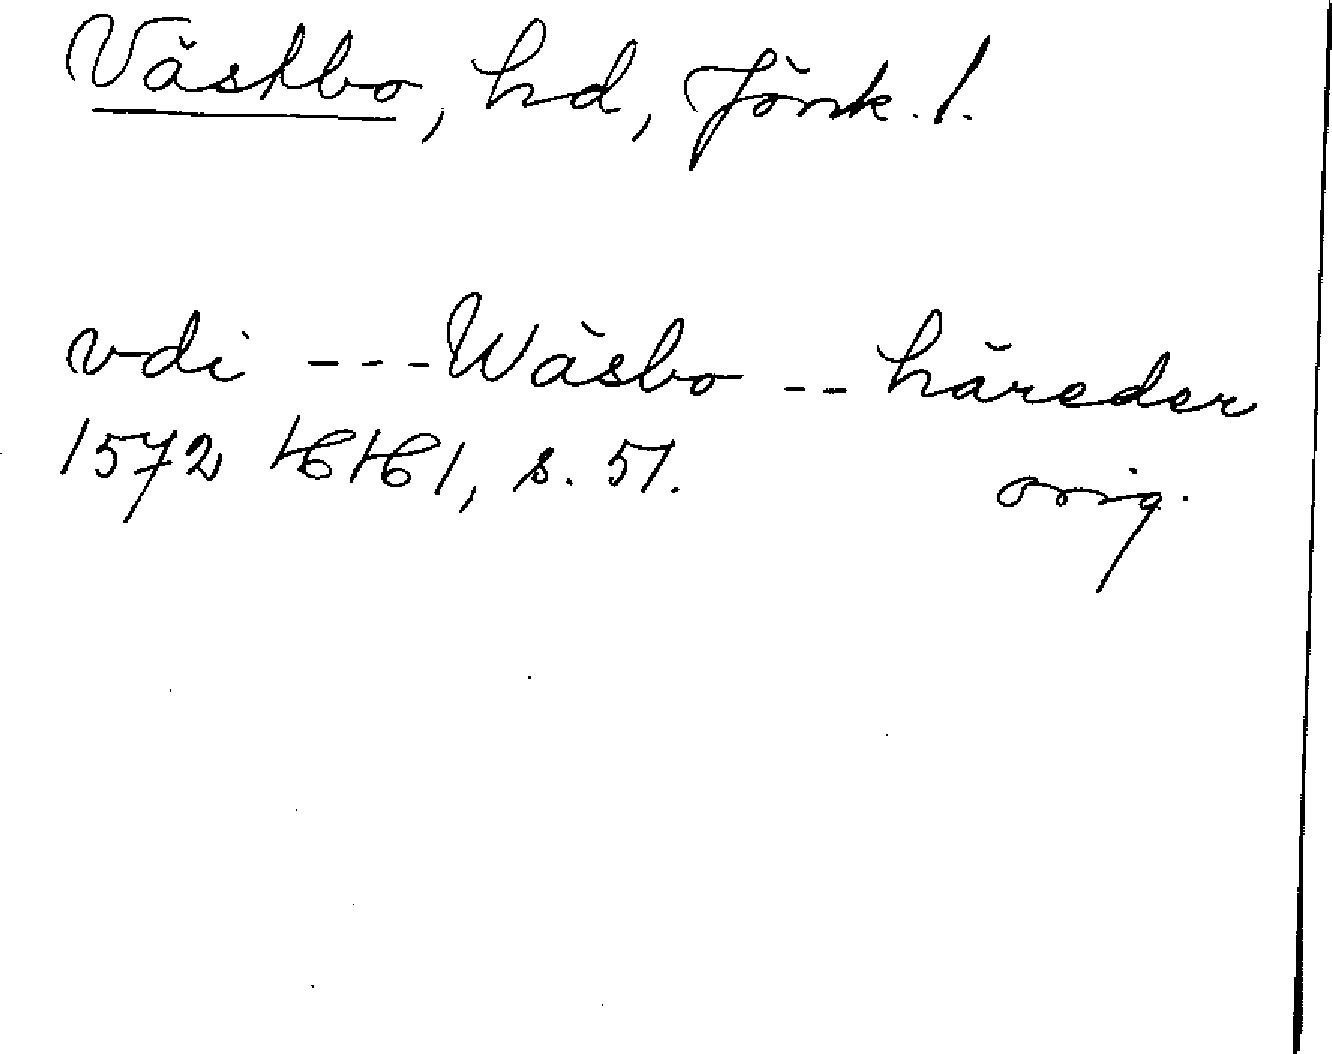 Västbo, hd, Jönk. l.
vdi --- Wäsbo -- häreder
1572 HHl, s. 51.
orig.